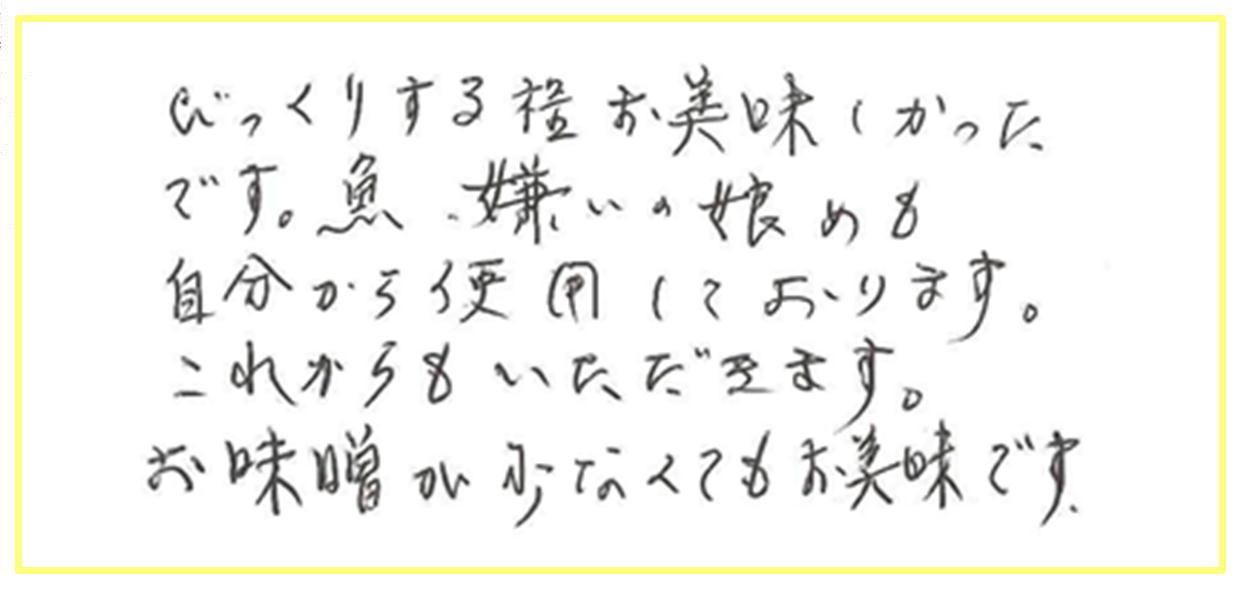 びっくりする程お美味しかった
です。魚嫌いの娘めも
自分から使用しております。
これからもいただきます。
お味噌が少なくてもお美味です.